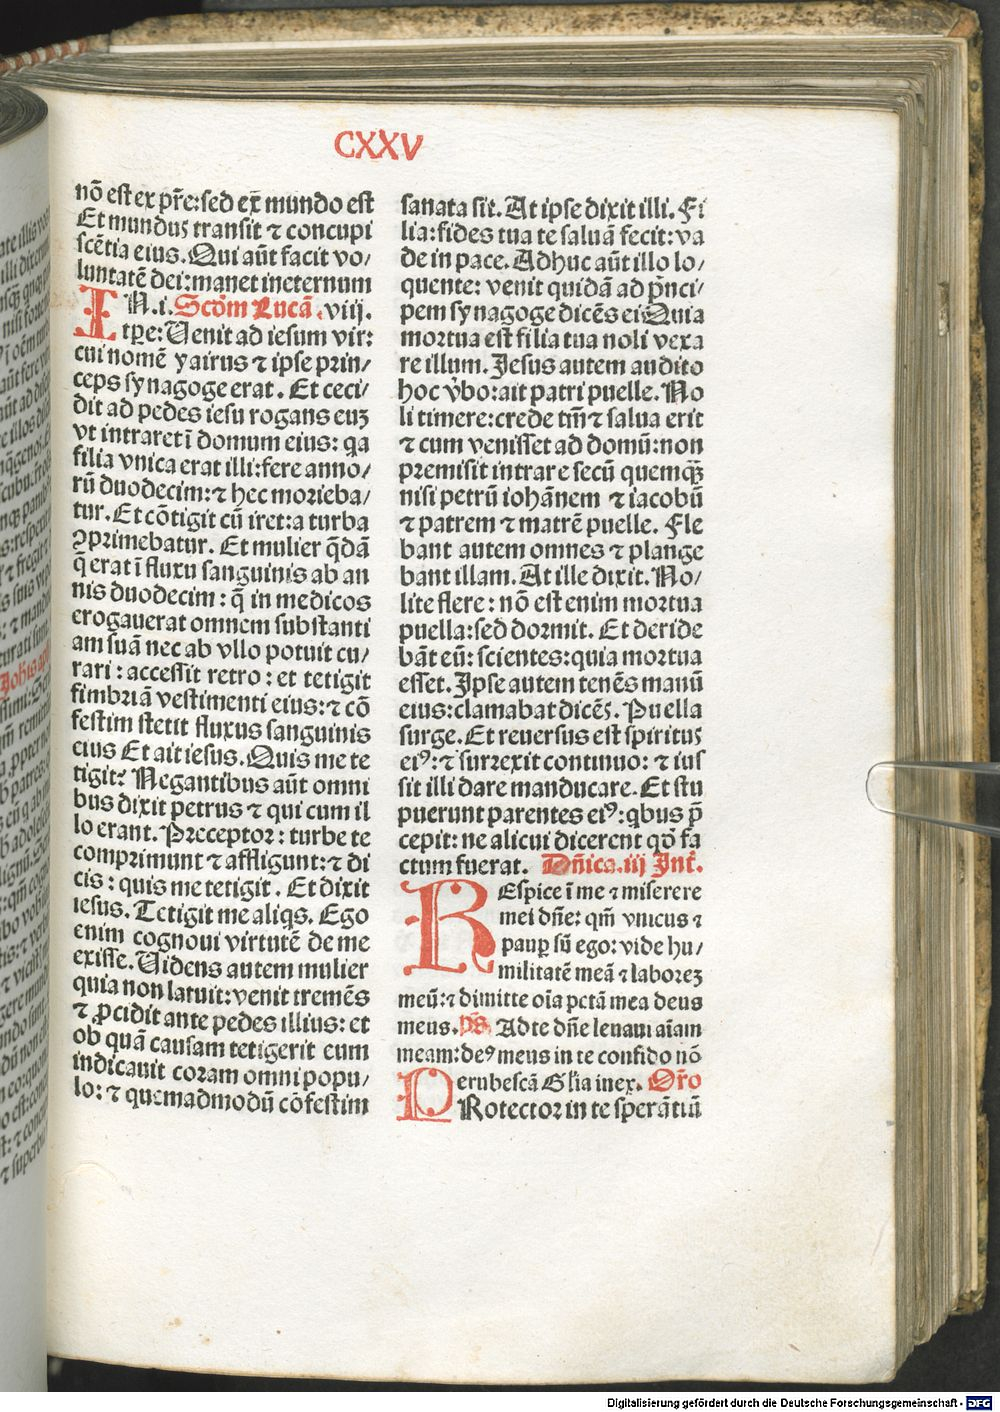 CXXV
nō est ex pr̄e: sed ex̄ mundo est
Et mundus transit ⁊ concupi
scētia eius. Qui aūt facit vo/
luntatē dei: manet ineternum
IN.i. Scd̄m Lucā .viij.
tp̄e: Uenit ad iesum vir:
cui nomē yairus ⁊ ipse prin/
ceps synagoge erat. Et ceci/
dit ad pedes iesu rogans euꝫ
vt intraret ī domum eius: qa
filia vnica erat illi: fere anno/
rū duodecim: ⁊ hec morieba/
tur. Et cōtigit cū iret: a turba
ꝯprimebatur. Et mulier q̄dā
q̄ erat ī fluxu sanguinis ab an
nis duodecim: q̄ in medicos
erogauerat omnem substanti
am suā nec ab vllo potuit cu/
rari: accessit retro: et tetigit
fimbriā vestimenti eius: ⁊ cō
festim stetit fluxus sanguinis
eius Et ait iesus. Quis me te
tigit? Negantibus aūt omni
bus dixit petrus ⁊ qui cum il
lo erant. Preceptor: turbe te
comprimunt ⁊ affligunt: ⁊ di
cis: quis me tetigit. Et dixit
iesus. Tetigit me aliqs. Ego
enim cognoui virtutē de me
exisse. Uidens autem mulier
quia non latuit: venit tremēs
⁊ ꝓcidit ante pedes illius: et
ob quā causam tetigerit eum
indicauit coram omni popu/
lo: ⁊ quemadmodū cōfestim
sanata sit. At ipse dixit illi. Fi
lia: fides tua te saluā fecit: va
de in pace. Adhuc aūt illo lo/
quente: venit quidā ad p̄nci/
pem synagoge dicēs ei Quia
mortua est filia tua noli vexa
re illum. Jesus autem audito
hoc v̄bo: ait patri puelle. No
li timere: crede tm̄ ⁊ salua erit
⁊ cum venisset ad domū: non
premisit intrare secū quemqꝫ
nisi petrū iohānem ⁊ iacobū
⁊ patrem ⁊ matrē puelle. Fle
bant autem omnes ⁊ plange
bant illam. At ille dixit. No/
lite flere: nō est enim mortua
puella: sed dormit. Et deride
bāt eū: scientes: quia mortua
esset. Ipse autem tenēs manū
eius: clamabat dicēs. Puella
surge. Et reuersus est spiritus
eiꝰ: ⁊ surrexit continuo: ⁊ ius
sit illi dare manducare. Et stu
puerunt parentes eiꝰ: qbus p̄
cepit: ne alicui dicerent qd̄ fa
ctum fuerat. Dn̄ica .iij Int̄.
REspice ī me ⁊ miserere
mei dn̄e: qm̄ vnicus ⁊
pauꝑ sū ego: vide hu/
militatē meā ⁊ laboreꝫ
meū: ⁊ dimitte oīa pctā mea deus
meus. ps̄ Ad te dn̄e leuaui aīam
meam: deꝰ meus in te confido nō
erubescā Gl̄ia in ex. Or̄o
PRotector in te sperātiū
Digitalisierung gefördert durch die Deutsche Forschungsgemeinschaft - DFG